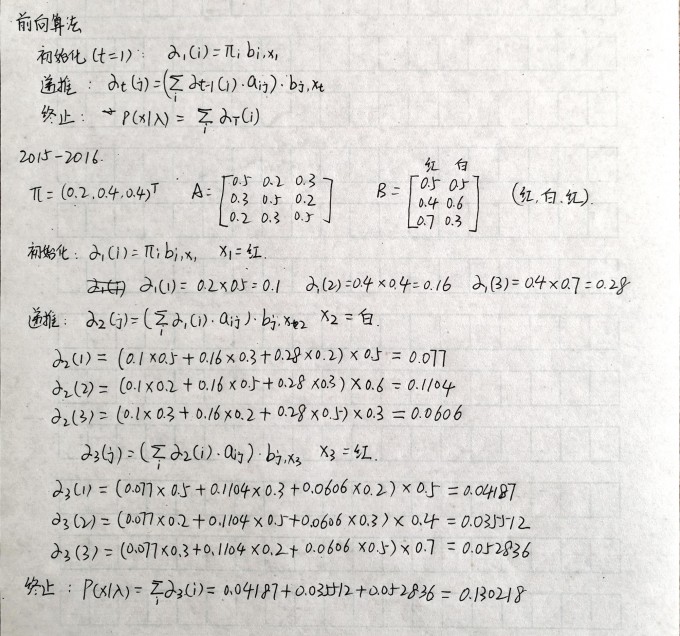 前向算法
初始化(t=1): α₁(i)=πᵢ bᵢ,x₁
递推: αₜ(j)=(∑ᵢ αₜ₋₁(i)·aᵢⱼ)·bⱼ,xₜ
终止: P(X|λ) = ∑ᵢ α_T(i)
2015-2016.
红 白
π=(0.2,0.4,0.4)ᵀ A=[0.5 0.2 0.3 B=[0.5 0.5 (红,白,红).
0.3 0.5 0.2 0.4 0.6
0.2 0.3 0.5] 0.7 0.3]
初始化: α₁(i)=πᵢbᵢ,x₁ x₁=红.
α₁(1)=0.2×0.5=0.1 α₁(2)=0.4×0.4=0.16 α₁(3)=0.4×0.7=0.28
递推: α₂(j)=(∑ᵢ α₁(i)·aᵢⱼ)·bⱼ,x₂ x₂=白.
α₂(1) = (0.1×0.5+0.16×0.3+0.28×0.2)×0.5 = 0.077
α₂(2) = (0.1×0.2+0.16×0.5+0.28×0.3)×0.6 = 0.1104
α₂(3) = (0.1×0.3+0.16×0.2+0.28×0.5)×0.3 = 0.0606
α₃(j)=(∑ᵢ α₂(i)·aᵢⱼ)·bⱼ,x₃ x₃=红.
α₃(1) = (0.077×0.5+0.1104×0.3+0.0606×0.2)×0.5 = 0.04187
α₃(2) = (0.077×0.2+0.1104×0.5+0.0606×0.3)×0.4 = 0.035512
α₃(3) = (0.077×0.3+0.1104×0.2+0.0606×0.5)×0.7 = 0.052836
终止: P(X|λ)=∑ᵢ α₃(i)=0.04187+0.035512+0.052836=0.130218